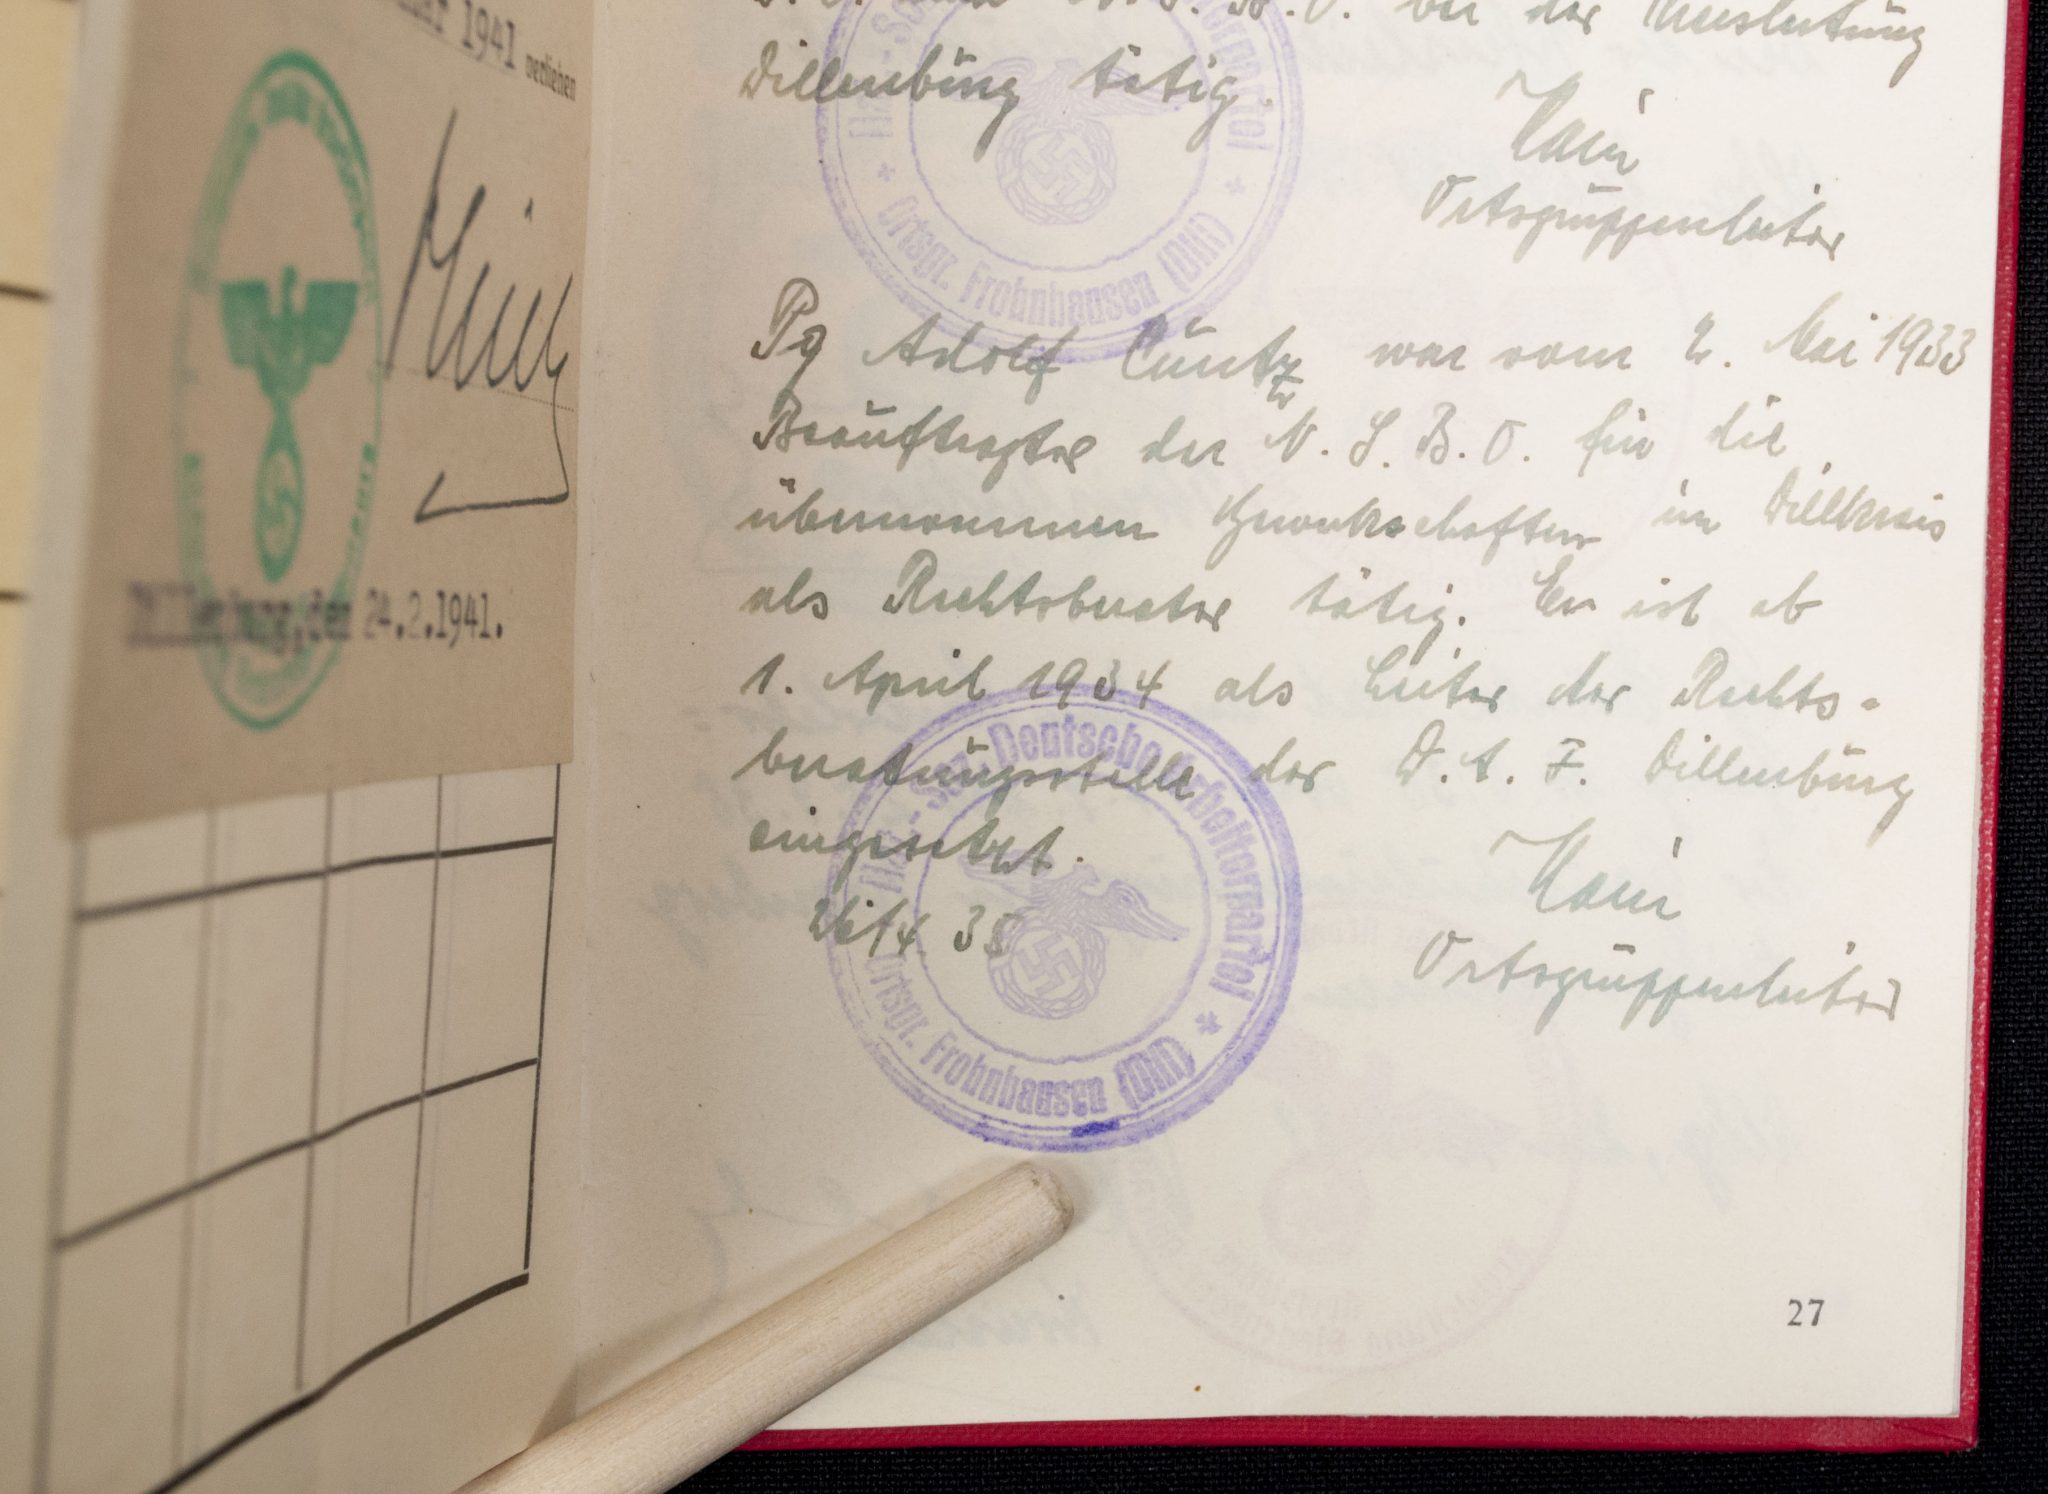 1941 verliehen
den 24.2.1941.
bei der Kreisleitung
Dillenburg tätig.
Ortsgruppenleiter
Ortsgr. Frohnhausen (Dill)
Pg Adolf Cuntz war vom 2. Mai 1933
Beauftragter der N.S.B.O. für die
übernommenen Gewerkschaften im Dillkreis
als Rechtsberater tätig. Er ist ab
1. April 1934 als Leiter der Rechts-
beratungsstelle der D.A.F. Dillenburg
eingesetzt.
Ortsgruppenleiter
Nat.-Soz. Deutsche Arbeiterpartei
Ortsgr. Frohnhausen (Dill)
27